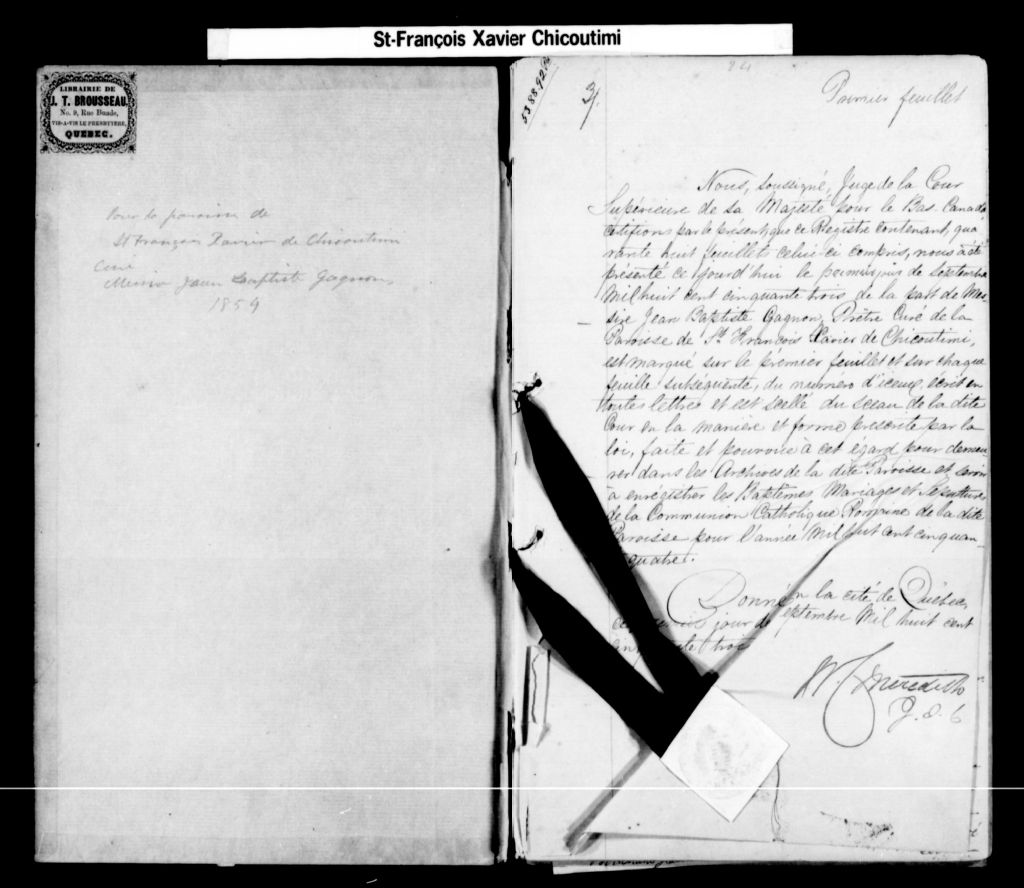 St-François Xavier Chicoutimi
LIBRAIRIE DE
J. T. BROUSSEAU,
No. 9, Rue Buade,
VIS-A-VIS LE PRESBYTERE,
QUEBEC.
Pour la paroisse de
St François Xavier de Chicoutimi
Curé
Messire Jean Baptiste Gagnon,
24
Premier feuillet
Nous, soussigné, Juge de la Cour
Supérieure de Sa Majesté pour le Bas-Canada
certifions par le présent, que ce Régistre contenant, qua
rante huit feuillets celui-ci compris, nous a été
présenté ce jourd'hui le premier jour de Septembre
Mil huit cent cinquante trois, de la part de Mes-
sire Jean Baptiste Gagnon, Prêtre Curé de la
Paroisse de St. François Xavier de Chicoutimi,
est marqué sur le prémier feuillet et sur chaque
feuille subséquente, du numéro d'iceux, écrit en
toutes lettres et est scellé du sceau de la dite
Cour en la manière et forme prescrite par la
loi, faite et pourvue à cet égard pour demeu-
rer dans les Archives de la dite Paroisse et servir
à enrégistrer les Baptêmes Mariages et Sépultures
de la Communion Catholique Romaine de la dite
Paroisse pour l'année Mil huit cent cinquan-
quatre.
Donné en la cité de Québec,
jour de Septembre Mil huit cent
trois
W. C. Meredith
J. S. C